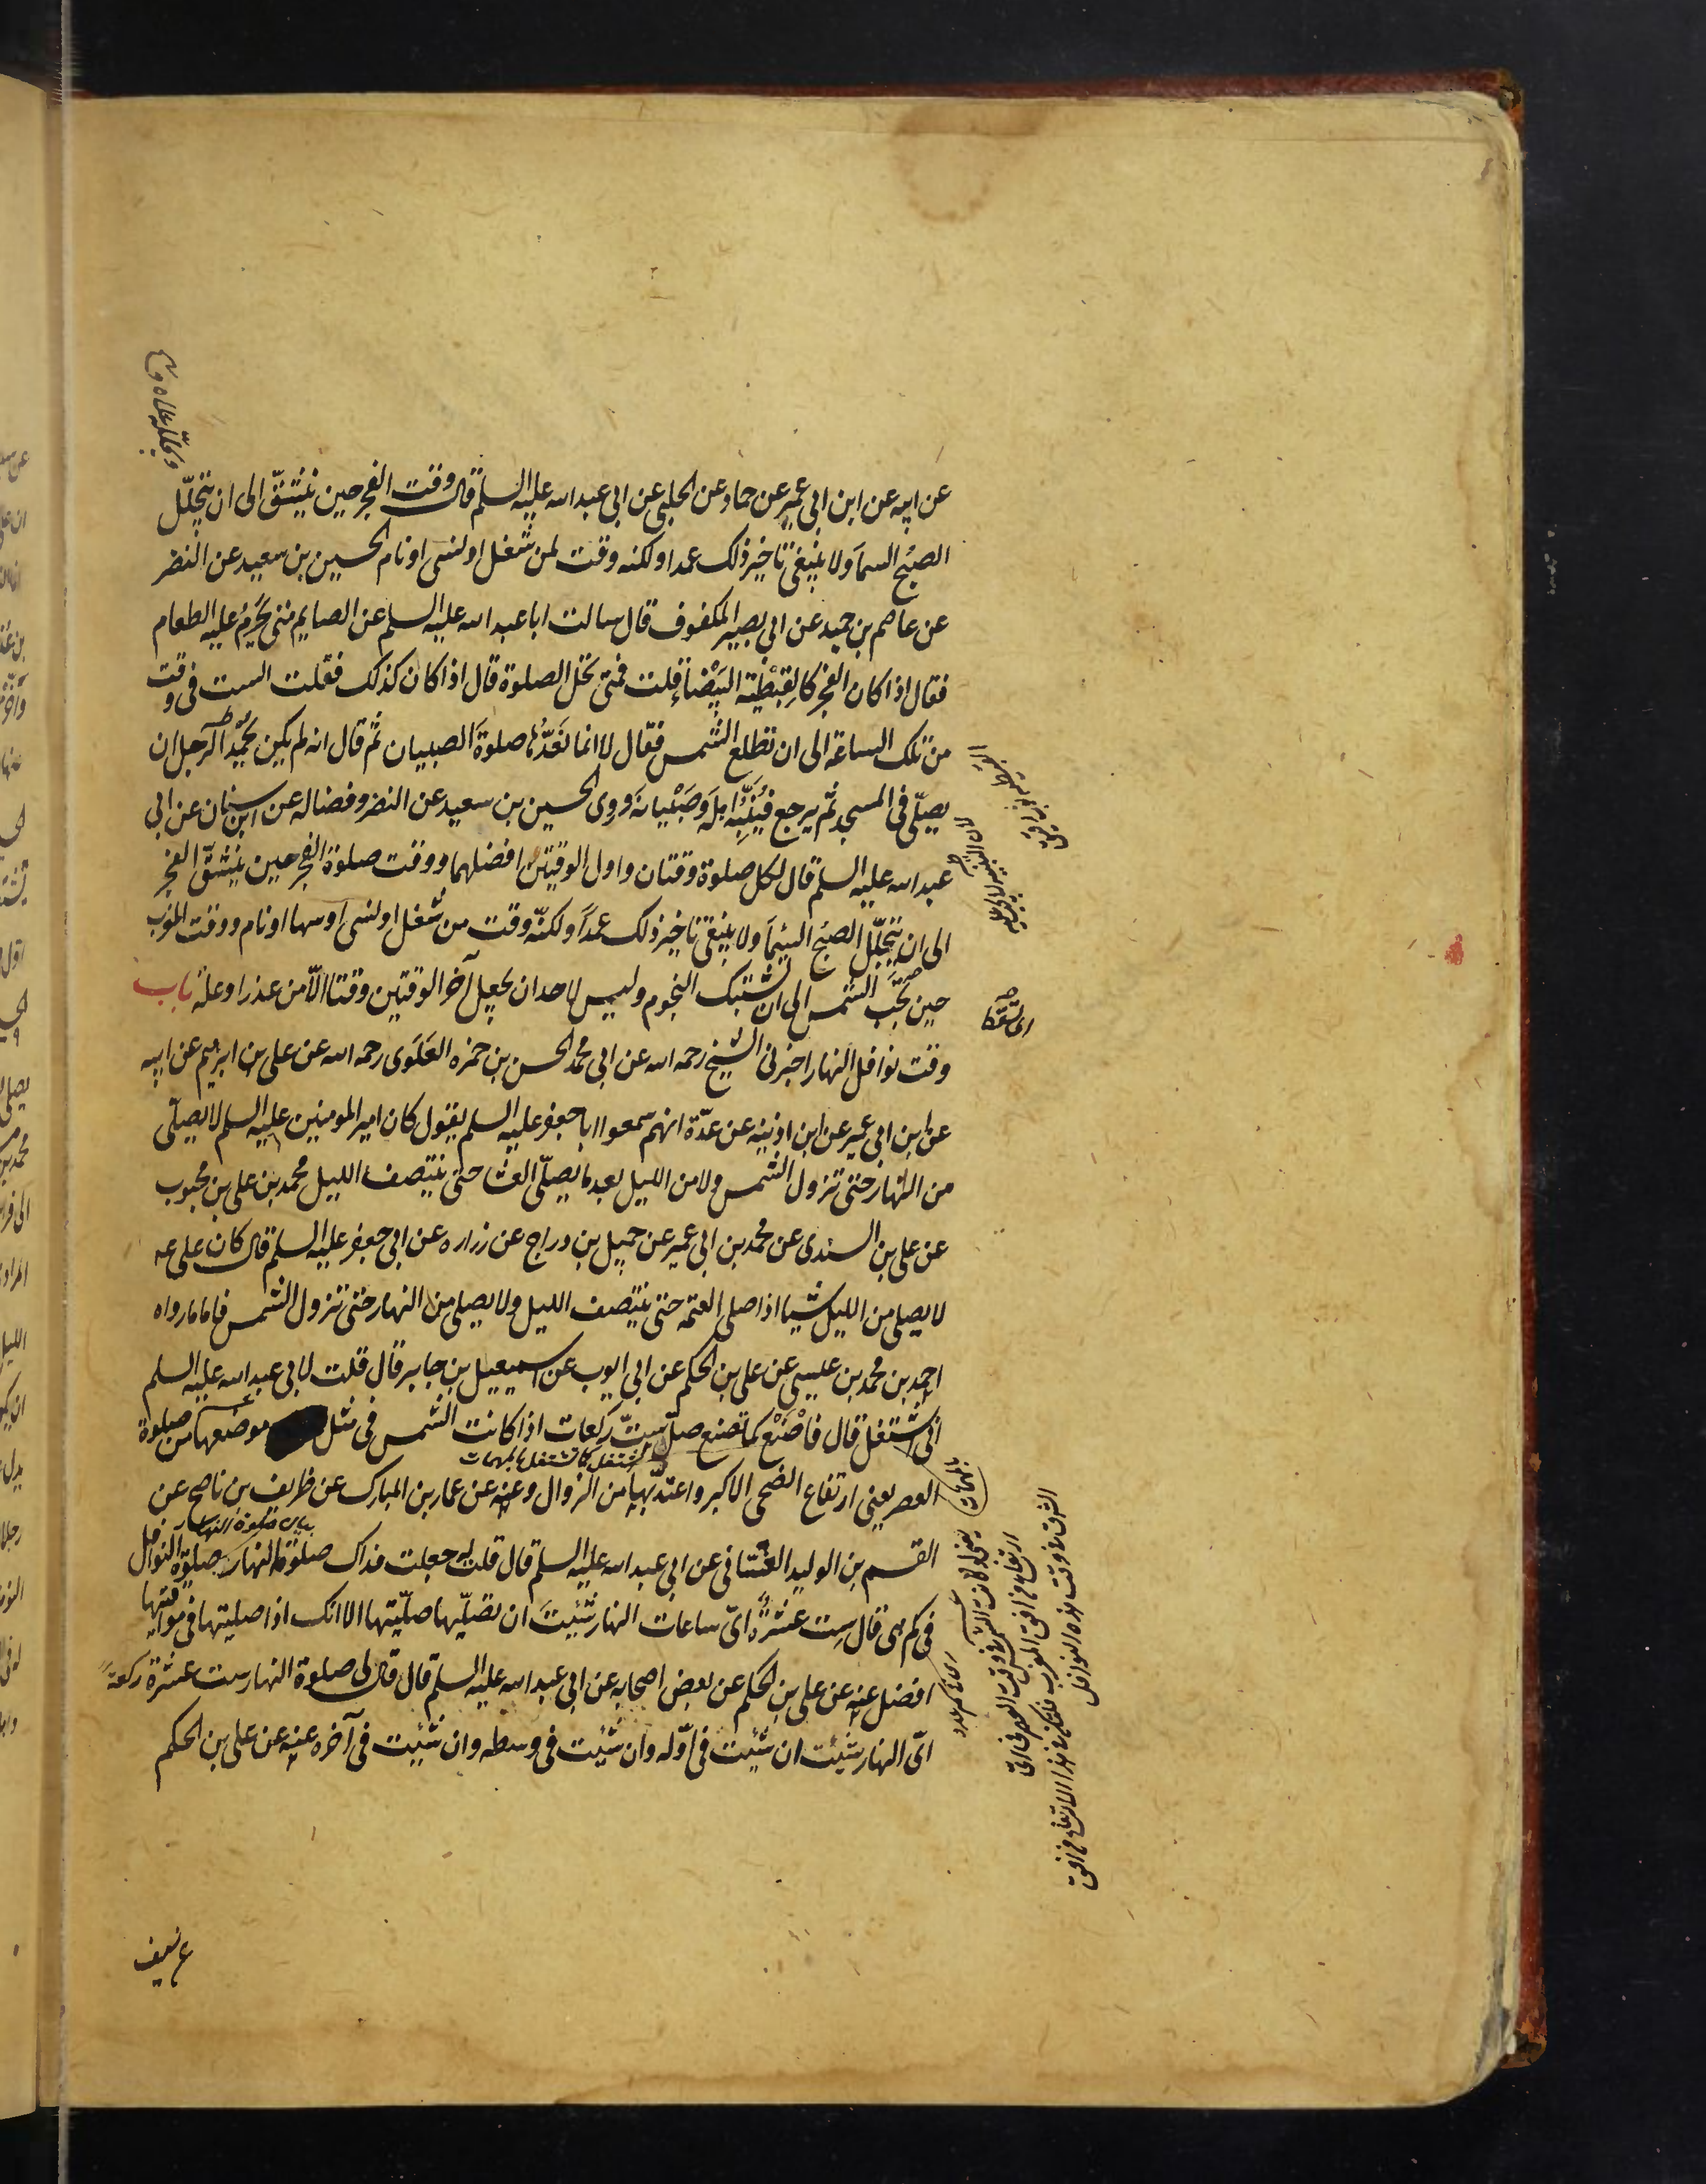 عن ابيه عن ابن ابى عمير عن حماد عن الحلبى عن ابى عبد الله عليه السلم قال وقت الفجر حين ينشقّ الى ان يتجلّل
الصبح السمآ ولا ينبغى تاخير ذلك عمدا ولكنه وقت لمن شغل او نسى او نام الحسين بن سعيد عن النضر
عن عاصم بن حميد عن ابى بصير المكفوف قال سالت ابا عبد الله عليه السلم عن الصايم متى يحرم عليه الطعام
فقال اذا كان الفجر كالقبطية البيضاء قلت فمتى تحل الصلوة قال اذا كان كذلك فقلت الست فى وقت
من تلك الساعة الى ان تطلع الشمس فقال لا انما نعدّها صلوة الصبيان ثم قال انه لم يكن يحمد الرجل ان
يصلّى فى المسجد ثم يرجع فينبّه اهله وصبيانه وروى الحسين بن سعيد عن النضر وفضاله عن ابن سنان عن ابى
عبد الله عليه السلم قال لكل صلوة وقتان واول الوقتين افضلهما ووقت صلوة الفجر حين ينشقّ الفجر
الى ان يتجلّل الصبح السمآ ولا ينبغى تاخير ذلك عمدا ولكنّه وقت من شغل او نسى او سها او نام ووقت المغرب
حين تحجب الشمس الى ان تشتبك النجوم وليس لاحد ان يجعل آخر الوقتين وقتا الّا من عذر او علة باب
وقت نوافل النهار اخبرنى الشيخ رحمه الله عن ابى محمد الحسن بن حمزه العلوى رحمه الله عن على بن ابرهيم عن ابيه
عن ابن ابى عمير عن ابن اذينه عن عدّة انهم سمعوا ابا جعفر عليه السلم يقول كان امير المومنين عليه السلم لا يصلّى
من النهار حتى تزول الشمس ولا من الليل بعد ما يصلّى العشا حتى ينتصف الليل محمد بن على بن محبوب
عن على بن السندى عن محمد بن ابى عمير عن جميل بن دراج عن زراره عن ابى جعفر عليه السلم قال كان على عه
لا يصلى من الليل شيا اذا صلى العتمه حتى ينتصف الليل ولا يصلى من النهار حتى تزول الشمس فاما ما رواه
احمد بن محمد بن عليسى عن على بن الحكم عن ابى ايوب عن اسمعيل بن جابر قال قلت لابى عبد الله عليه السلم
انى اشتغل قال فاصنع كما تصنع صلّ ستّ ركعات اذا كانت الشمس فى مثل موضعها من صلوة
العصر يعنى ارتفاع الضحى الاكبر واعتدّ بها من الزوال وعنه عن عمار بن المبارك عن ظريف بن ناصح عن
القسم بن الوليد الغسانى عن ابى عبد الله عليه السلم قال قلت له جعلت فداك صلوة النهار صلوة النوافل
فى كم هى قال ست عشرة اىّ ساعات النهار شئيت ان تصلّيها صلّيتها الا انك اذا صليتها فى مواقيتها
افضل عنه عن على بن الحكم عن بعض اصحابه عن ابى عبد الله عليه السلم قال قال لى صلوة النهار ست عشرة ركعة
اىّ النهار شئت ان شئيت فى اوّله وان شئيت فى وسطه وان شئيت فى آخره عنه عن على بن الحكم